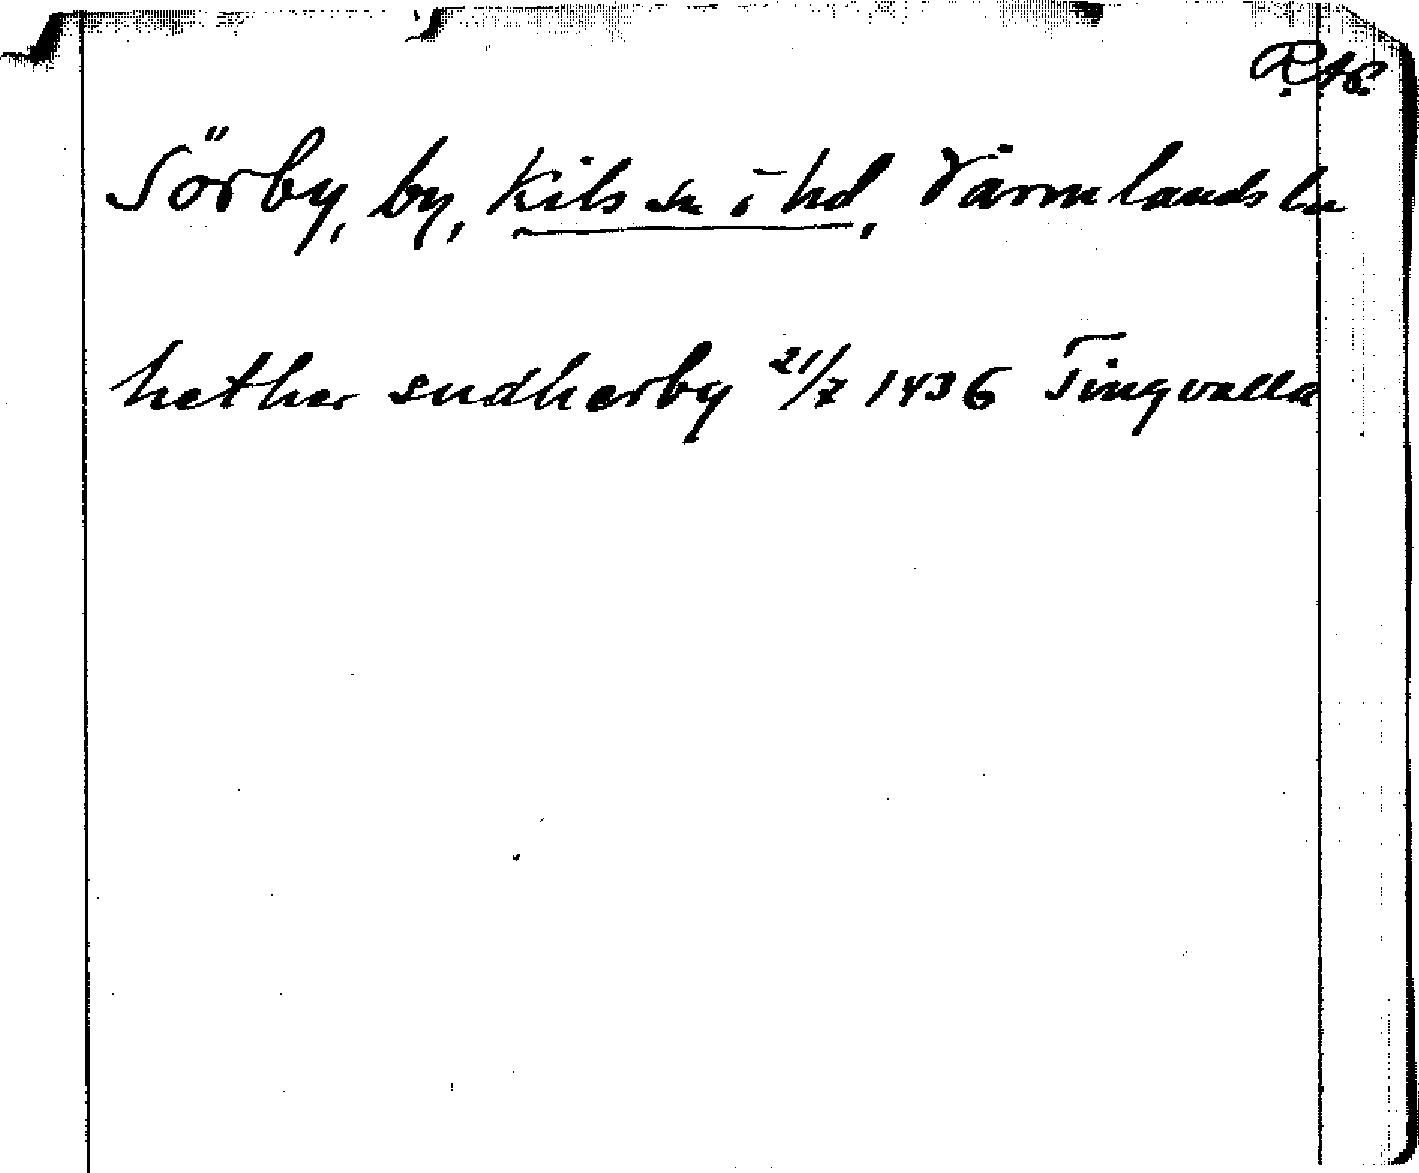 Sörby, by, Kils sn i hd, Värmlands län
hether sudherby 21/7 1436 Tingvalla